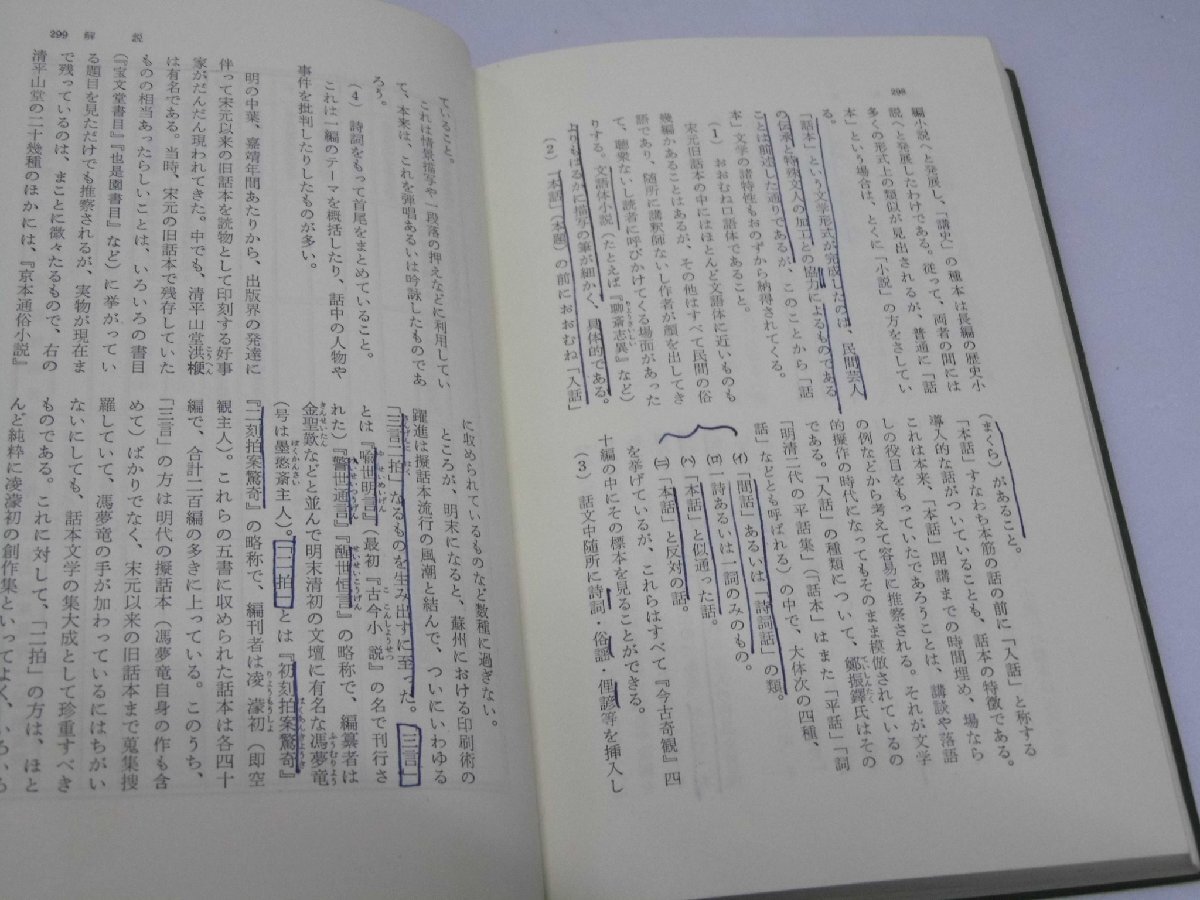 298
編小説へと発展し、「講史」の種本は長編の歴史小
説へと発展したわけである。従って、両者の間には
多くの形式上の類似が見出されるが、普通に「話
本」という場合は、とくに「小説」の方をさしてい
る。
「話本」という文学形式が完成したのは、民間芸人
の伝承と特殊文人の加工との協力によるものである
ことは前述した通りであるが、このことから「話
本」文学の諸特性もおのずから納得されてくる。
(1) おおむね口語体であること。
宋元旧話本の中にはほとんど文語体に近いものも
幾編かあることはあるが、その他はすべて民間の俗
語であり、随所に講釈師ないし作者が顔を出してき
て、聴衆ないし読者に呼びかけてくる場面があった
りする。文語体小説(たとえば『聊斎志異』など)
よりもはるかに描写の筆が細かく、具体的である。
(2) 「本話」(本題)の前におおむね「入話」
(まくら)があること。
「本話」すなわち本筋の話の前に「入話」と称する
導入的な話がついていることも、話本の特徴である。
これは本来、「本話」開講までの時間埋め、場なら
しの役目をもっていたであろうことは、講談や落語
の例などから考えて容易に推察される。それが文学
的擬作の時代になってもそのまま模倣されているの
である。「入話」の種類について、鄭振鐸氏はその
「明清二代の平話集」(「話本」はまた「平話」「詞
話」などとも呼ばれる)の中で、大体次の四種、
(イ) 「閒話」あるいは「詩詞話」の類。
(ロ) 一詩あるいは一詞のみのもの。
(ハ) 「本話」と似通った話。
(ニ) 「本話」と反対の話。
を挙げているが、これらはすべて『今古奇観』四
十編の中にその標本を見ることができる。
(3) 話文中随所に詩詞・俗謡・俚諺等を挿入し
299 解 説
ていること。
これは情景描写や一段落の押えなどに利用してい
て、本来は、これを弾唱あるいは吟詠したものであ
ろう。
(4) 詩詞をもって首尾をまとめていること。
これは一編のテーマを概括したり、話中の人物や
事件を批判したりしたものが多い。
明の中葉、嘉靖年間あたりから、出版界の発達に
伴って宋元以来の旧話本を読物として印刻する好事
家がだんだん現われてきた。中でも、清平山堂洪楩
は有名である。当時、宋元の旧話本で残存していた
ものの相当あったらしいことは、いろいろの書目
(『宝文堂書目』『也是園書目』など)に挙がってい
る題目を見ただけでも推察されるが、実物が現在ま
で残っているのは、まことに微々たるもので、右の
清平山堂の二十幾種のほかには、『京本通俗小説』
に収められているものなど数種に過ぎない。
ところが、明末になると、蘇州における印刷術の
躍進は擬話本流行の風潮と結んで、ついにいわゆる
「三言二拍」なるものを生み出すに至った。「三言」
とは『喩世明言』(最初『古今小説』の名で刊行さ
れた)『警世通言』『醒世恒言』の略称で、編纂者は
金聖歎などと並んで明末清初の文壇に有名な馮夢竜
(号は墨憨斎主人)。「二拍」とは『初刻拍案驚奇』
『二刻拍案驚奇』の略称で、編刊者は凌濛初(即空
観主人)。これらの五書に収められた話本は各四十
編で、合計二百編の多きに上っている。このうち、
「三言」の方は明代の擬話本(馮夢竜自身の作も含
めて)ばかりでなく、宋元以来の旧話本まで蒐集捜
羅していて、馮夢竜の手が加わっているにはちがい
ないにしても、話本文学の集大成として珍重すべき
ものである。これに対して、「二拍」の方は、ほと
んど純粋に凌濛初の創作集といってよく、いろいろ